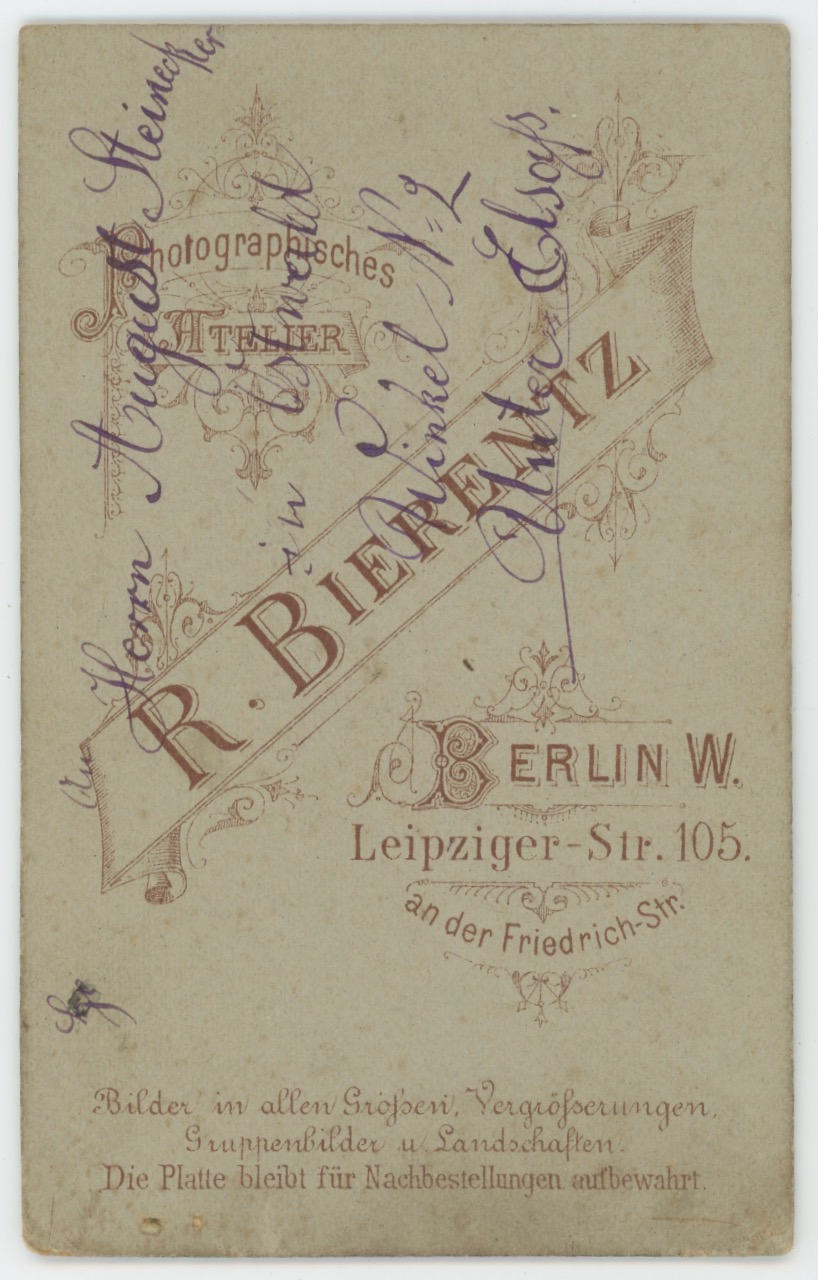 Photographisches
Atelier
R. Bierentz
Berlin W.
Leipziger-Str. 105.
an der Friedrich-Str.
Bilder in allen Größen, Vergrößerungen,
Gruppenbilder u. Landschaften.
Die Platte bleibt für Nachbestellungen aufbewahrt.
An
Herrn August Steinecker
in
Winkel N= 2
Unter Elsaß.